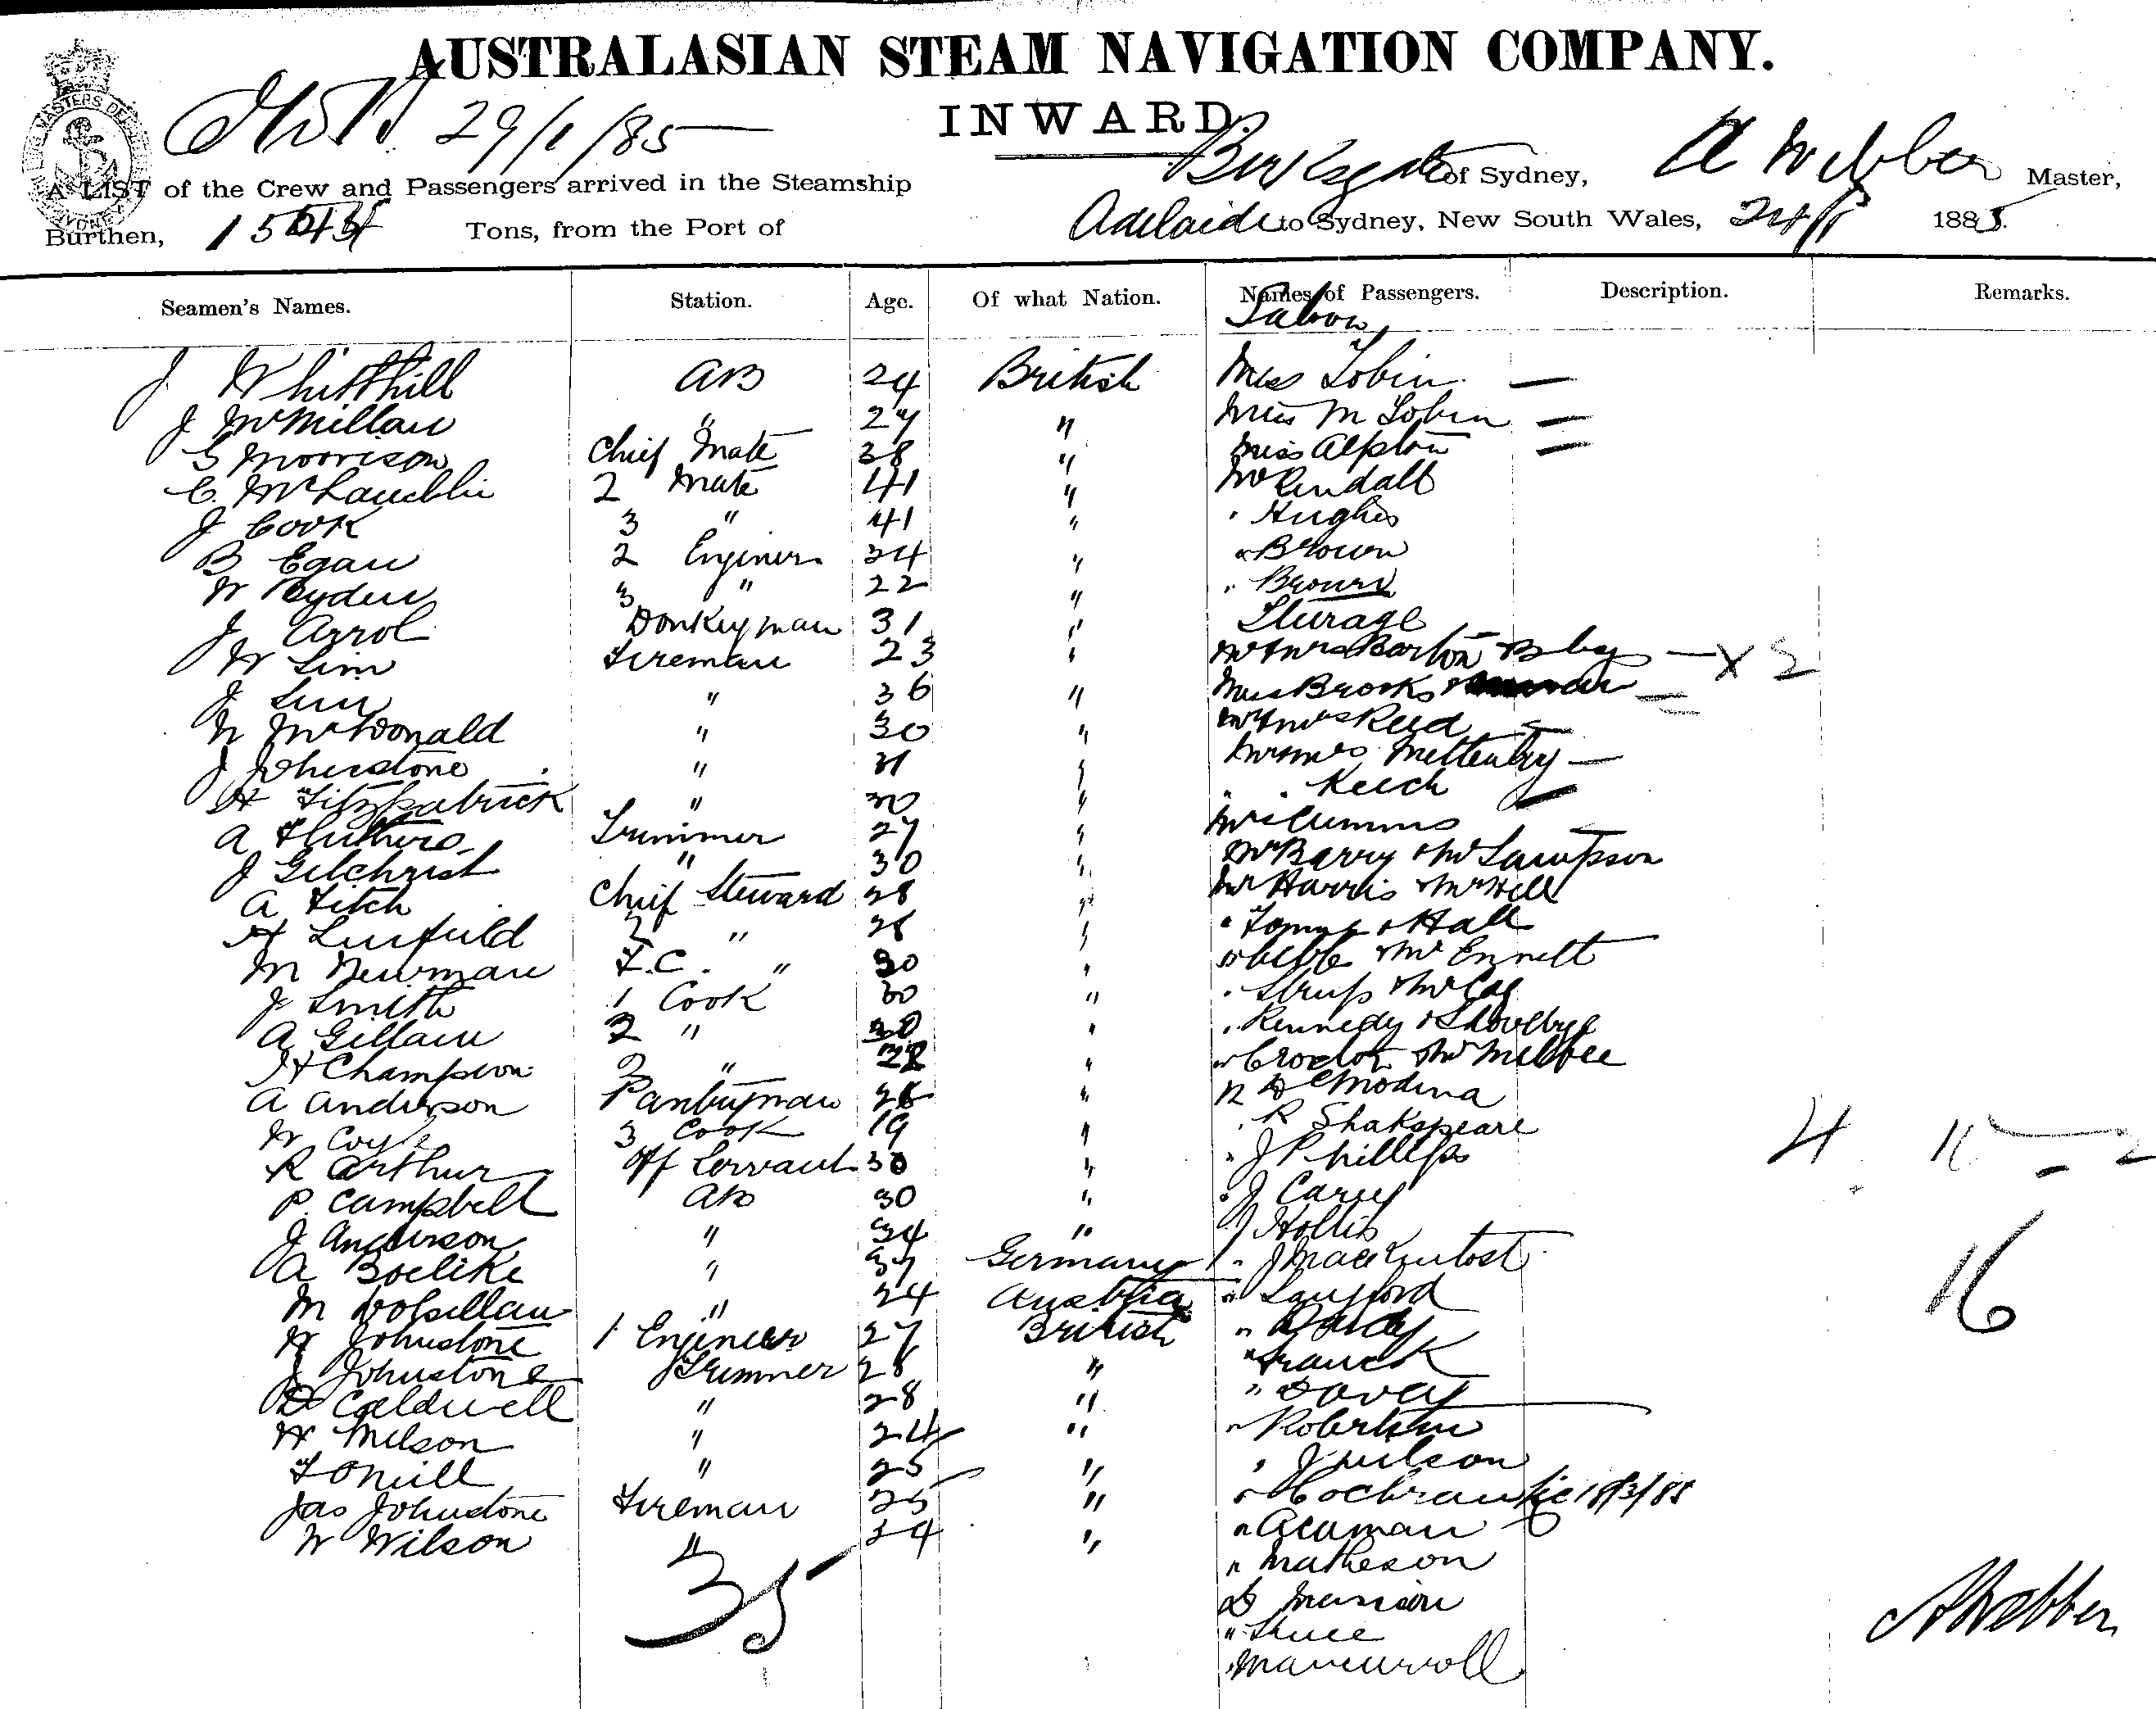 AUSTRALASIAN STEAM NAVIGATION COMPANY.
29/1/85
INWARD.
A LIST of the Crew and Passengers arrived in the Steamship Burksgate of Sydney, A Webber Master,
Burthen, Tons, from the Port of Adelaide to Sydney, New South Wales, 1885.
Seamen's Names. Station. Age. Of what Nation. Names of Passengers. Description. Remarks.
Saloon
J Whitthill AB 24 British Miss Tobin
J McMillan " 27 " Miss M Tobin
S Morrison Chief Mate 38 " Miss
C. McLauchlin 2 Mate 41 " Mr Rendall
J Cook 3 " 41 " " Hughes
B Egan 2 Engineer 34 " " Brown
W Ryder 3 " 22 " " Brown
J Arrol Donkeyman 31 " Sturage
W Sim Fireman 23 " Mr & Mrs Barton & Baby X 2
J " 36 " Miss Brooks
N McDonald " 30 " Mr & Mrs Reed
J Johnstone " 31 " Mr & Mrs
H Fitzpatrick " 30 " " " Keech
A Struthers Trimmer 27 " Mrs Cummins
J Gilchrist " 30 " Mr Barry & Mr Sampson
A Fitch Chief Steward 28 " Mr Harris & Mr Hill
H Linfield 2 " 28 " " & Hall
M Newman F.C. " 30 " " Webb & Mr Ennett
J Smith 1 Cook 30 " " & Mr
A Gillam 2 " 30 " " Kennedy &
H Champion 3 " 28 " " & Mr
A Anderson Pantryman 26 " De Modena
W Coyle 3 Cook 19 " " R Shakspeare
R Arthur Off Servant 30 " " J Phillips
P. Campbell AB 30 " " J Carey
J Anderson " 34 " J Hollis
A Boelike " 37 Germany " J Mackintosh
M " 24 Austria " Langford
W Johnstone 1 Engineer 27 British "
J Johnstone Trimmer 28 " " Franck
D Caldwell " 28 " " Davey
H Melson " 24 " " Robertson
F ONeill " 25 " " J Wilson
Jas Johnstone Fireman 25 " " Cochran 18/3/85
W Wilson " 24 " " Acaman
35
" Matheson
"
"
4
16
A Webber